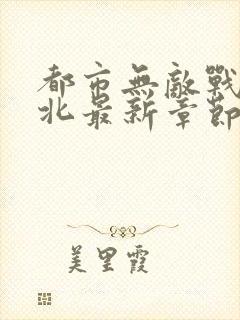 都市無敵戰
北最新章節
美里霞